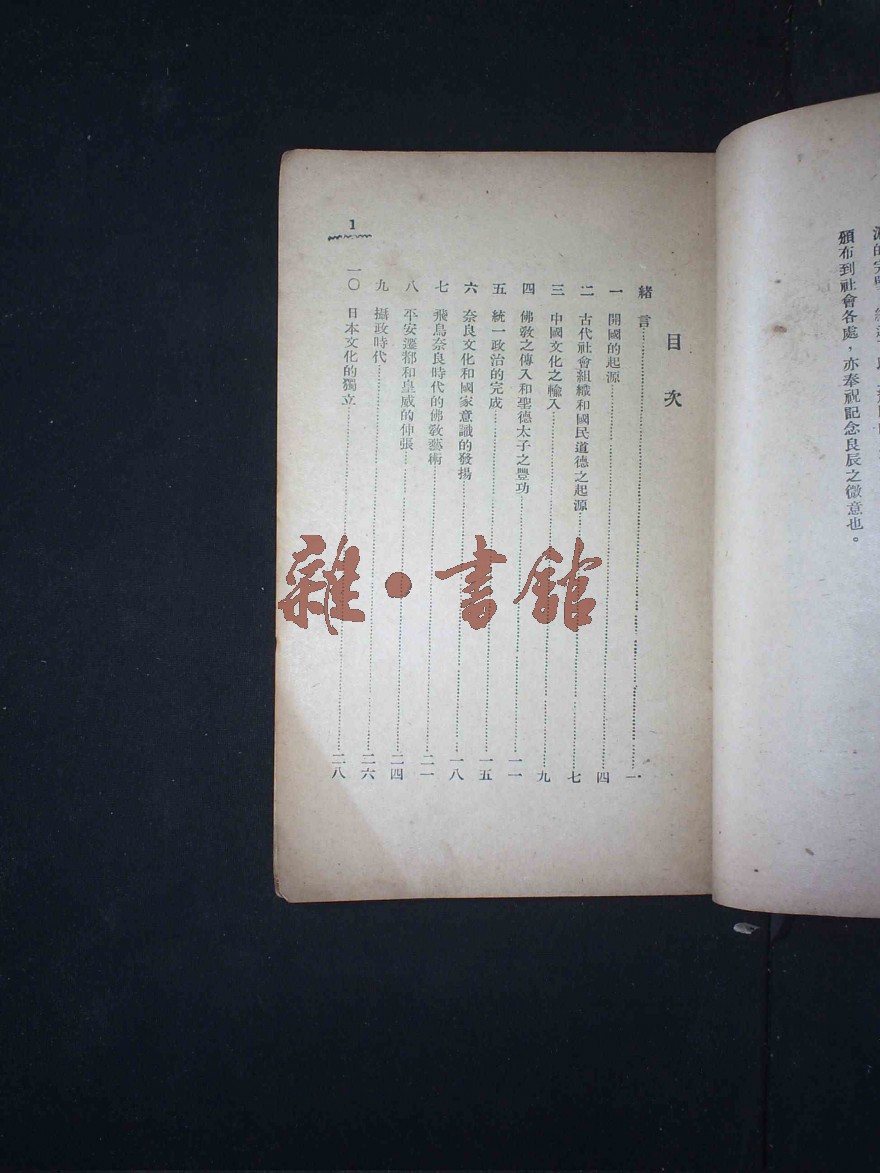 頒布到社會各處，亦奉祝記念良辰之微意也。
目次
緒言……一
一 開國的起源……四
二 古代社會組織和國民道德之起源……七
三 中國文化之輸入……九
四 佛敎之傳入和聖德太子之豐功……一一
五 統一政治的完成……一五
六 奈良文化和國家意識的發揚……一八
七 飛鳥奈良時代的佛敎藝術……二一
八 平安遷都和皇威的伸張……二四
九 攝政時代……二六
一〇 日本文化的獨立……二八
1
雜·書館